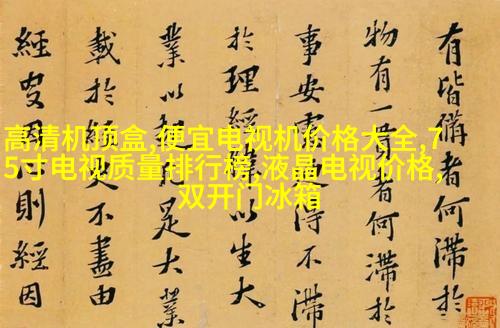 高清机顶盒,便宜电视机价格大全,7
5寸电视质量排行榜,液晶电视价格,
双开门冰箱
有皆者何滞於
物有一者何滞於
事安得不滞
於理以生大
業以是大業
載於不盡由
經則經因